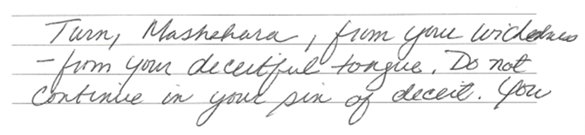 Turn, Mashehara, from your wickedness
- from your deceitful tongue. Do not
continue in your sin of deceit. You